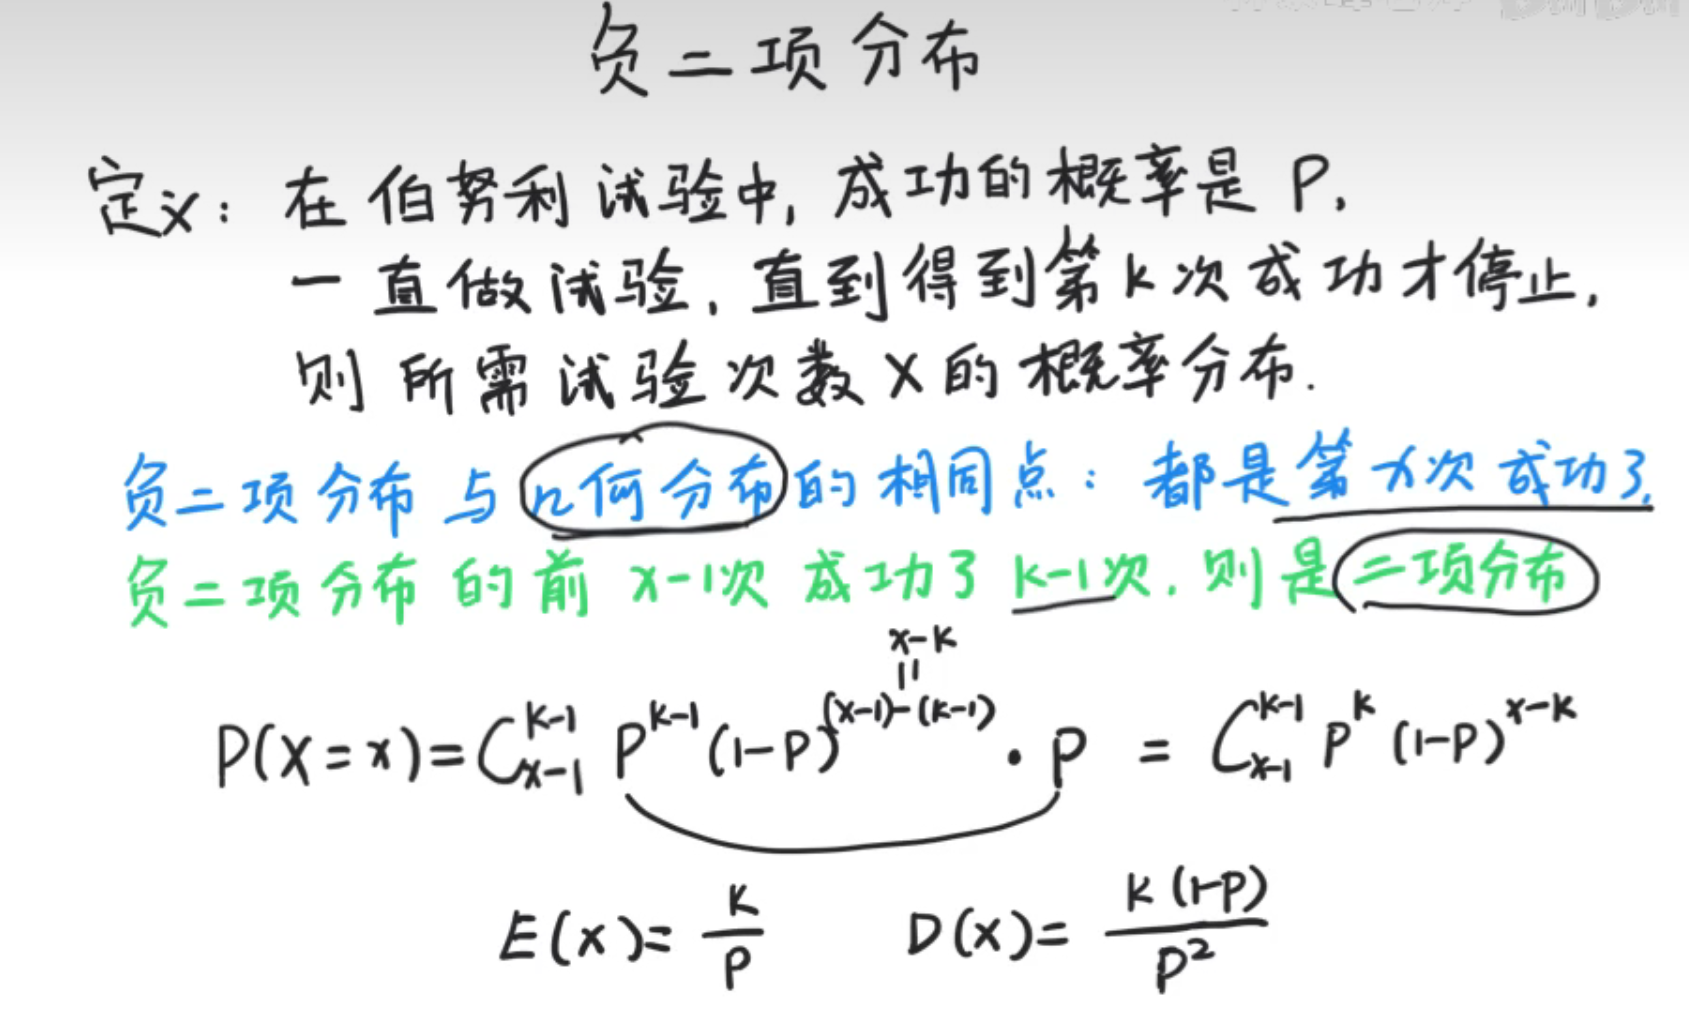 负二项分布
定义：在伯努利试验中，成功的概率是 P，
一直做试验，直到得到第k次成功才停止，
则所需试验次数X的概率分布．
负二项分布与几何分布的相同点：都是第x次成功了，
负二项分布的前 x-1次 成功了 k-1次，则是二项分布
x-k
=
P(X=x)=C_{x-1}^{k-1} P^{k-1} (1-P)^{(x-1)-(k-1)} · P = C_{x-1}^{k-1} P^{k} (1-P)^{x-k}
E(x)=k/P D(x)=k(1-P)/P²